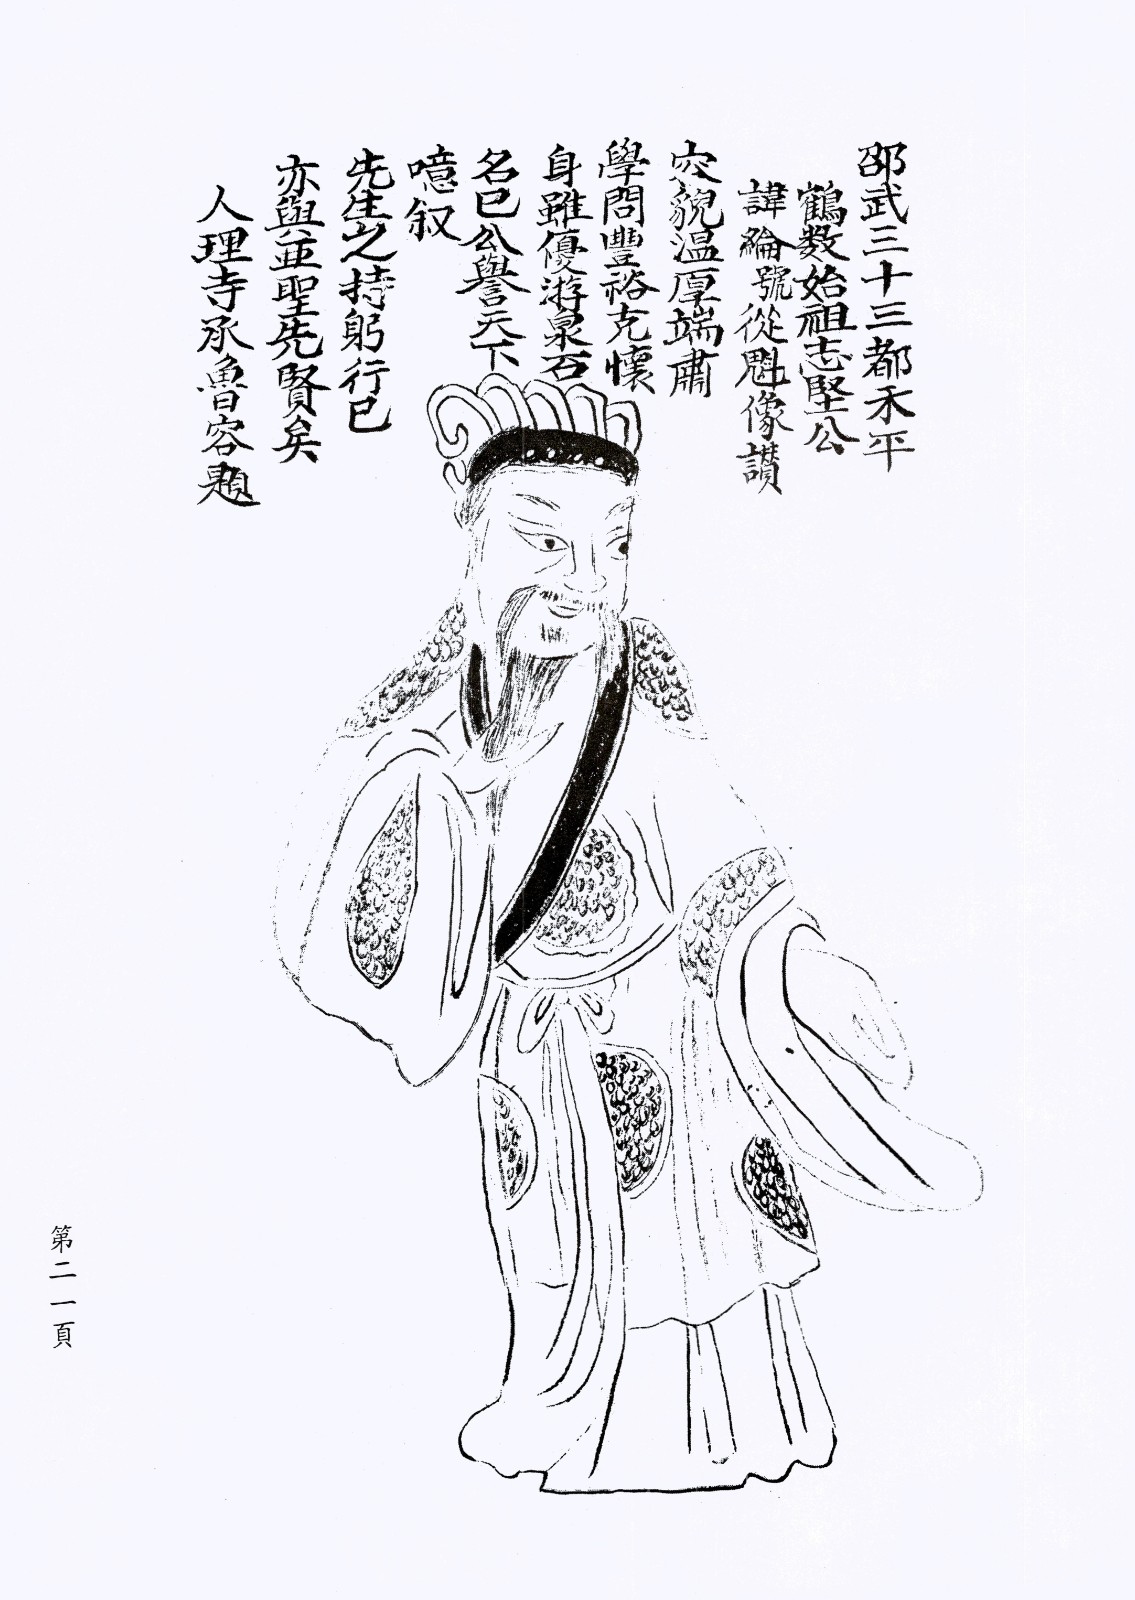 邵武三十三都禾平
鶴数始祖志堅公
諱綸號從魁像讃
容貌温厚端肅
學問豐裕克懷
身雖優游泉石
名已公譽天下
噫叙
先生之持躬行已
亦與並聖先賢矣
人理寺承魯容題
第二一頁